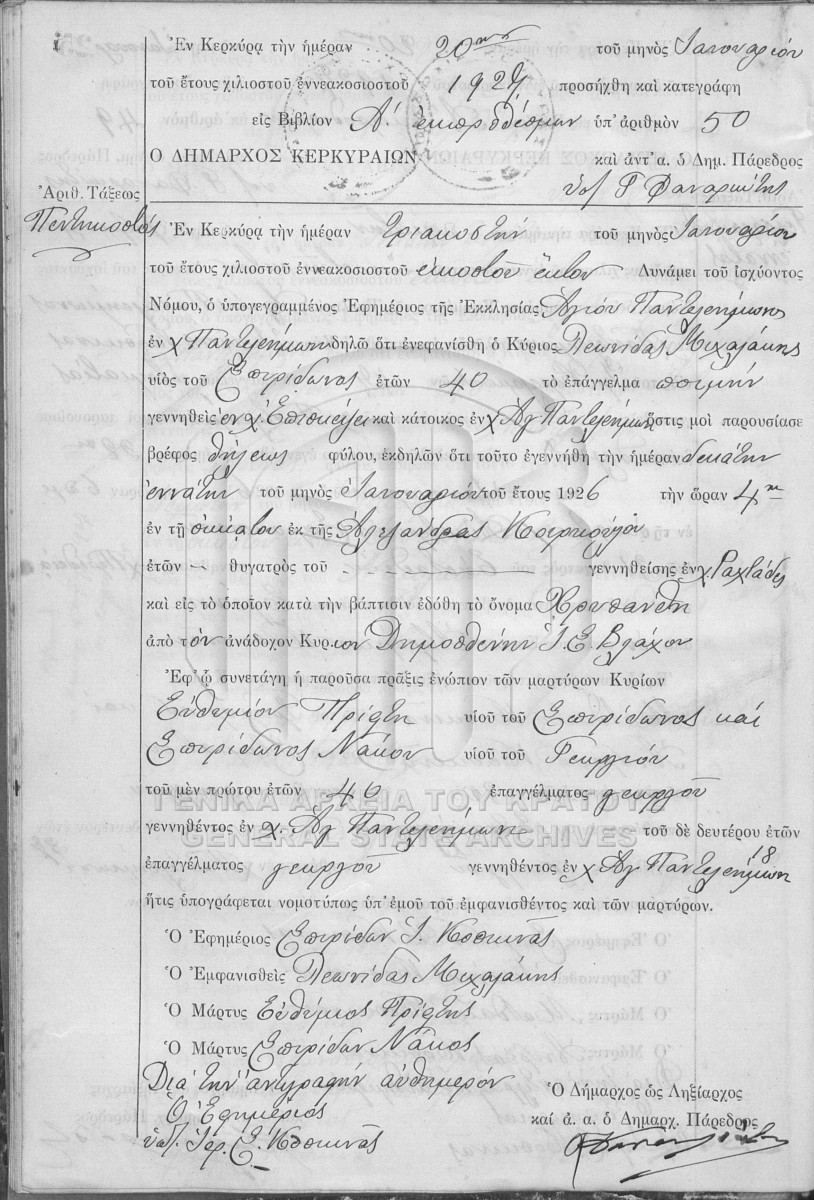 Ἐν Κερκύρᾳ τὴν ἡμέραν 20ην τοῦ μηνὸς Ἰανουαρίου
τοῦ ἔτους χιλιοστοῦ ἐννεακοσιοστοῦ 1927 προσήχθη καὶ κατεγράφη
εἰς Βιβλίον Α΄. ἐκπροθέσμων ὑπ᾽ ἀριθμὸν 50
Ο ΔΗΜΑΡΧΟΣ ΚΕΡΚΥΡΑΙΩΝ καὶ ἀντ᾽ α. ὁ Δημ. Πάρεδρος
Ἀριθ. Τάξεως
Πεντηκοστὸς
Ἐν Κερκύρᾳ τὴν ἡμέραν τριακοστὴν τοῦ μηνὸς Ἰανουαρίου
τοῦ ἔτους χιλιοστοῦ ἐννεακοσιοστοῦ εἰκοστοῦ ἕκτου Δυνάμει τοῦ ἰσχύοντος
Νόμου, ὁ ὑπογεγραμμένος Ἐφημέριος τῆς Ἐκκλησίας Ἁγίου Παντελεήμονος
ἐν χ Παντελεήμωνι δηλῶ ὅτι ἐνεφανίσθη ὁ Κύριος Λεωνίδας Μιχαλάκης
υἱὸς τοῦ Σπυρίδωνος ἐτῶν 40 τὸ ἐπάγγελμα ποιμὴν
γεννηθεὶς ἐν χ. Ἐπισκέψει καὶ κάτοικος ἐν χ Ἁγ Παντελεήμων ὅστις μοὶ παρουσίασε
βρέφος θήλεως φύλου, ἐκδηλῶν ὅτι τοῦτο ἐγεννήθη τὴν ἡμέραν δεκάτην
ἐννάτην τοῦ μηνὸς Ἰανουαρίου τοῦ ἔτους 1926 τὴν ὥραν 4
ἐν τῇ οἰκίᾳ του ἐκ τῆς Ἀλεξάνδρας
ἐτῶν — θυγατρὸς τοῦ — — — — γεννηθείσης ἐν χ. Ραχτάδες
καὶ εἰς τὸ ὁποῖον κατὰ τὴν βάπτισιν ἐδόθη τὸ ὄνομα Χρυσάνθη
ἀπὸ τὸν ἀνάδοχον Κύριον Δημοσθένην Ἰ. Ε. Βλάχου
Ἐφ᾽ ᾧ συνετάγη ἡ παροῦσα πρᾶξις ἐνώπιον τῶν μαρτύρων Κυρίων
Εὐθυμίου Πρίφτη υἱοῦ τοῦ Σπυρίδωνος καὶ
Σπυρίδωνος Νάκου υἱοῦ τοῦ Γεωργίου
τοῦ μὲν πρώτου ἐτῶν 40 ἐπαγγέλματος γεωργοῦ
ΓΕΝΙΚΑ ΑΡΧΕΙΑ ΤΟΥ ΚΡΑΤΟΥΣ
γεννηθέντος ἐν χ. Ἁγ Παντελεήμωνι τοῦ δὲ δευτέρου ἐτῶν
GENERAL STATE ARCHIVES
18
ἐπαγγέλματος γεωργοῦ γεννηθέντος ἐν χ Ἁγ Παντελεήμωνι
ἥτις ὑπογράφεται νομοτύπως ὑπ᾽ ἐμοῦ τοῦ ἐμφανισθέντος καὶ τῶν μαρτύρων.
Ὁ Ἐφημέριος Σπυρίδων Ἰ. Κοσκινᾶς
Ὁ Ἐμφανισθεὶς Λεωνίδας Μιχαλάκης
Ὁ Μάρτυς Εὐθύμιος Πρίφτης
Ὁ Μάρτυς Σπυρίδων Νάκος
Διὰ τὴν ἀντιγραφὴν αὐθημερόν
Ὁ Ἐφημέριος
ὑπ. Ἰερ. Σ. Κοσκινᾶς
Ὁ Δήμαρχος ὡς Ληξίαρχος
καί ἀ. α. ὁ Δημαρχ. Πάρεδρος